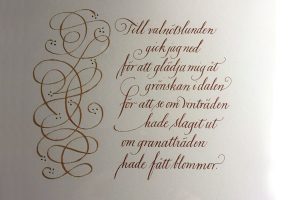 Till valnötslunden
gick jag ned
för att glädja mig åt
grönskan i dalen
för att se om vinträden
hade slagit ut
om granatträden
hade fått blommor.